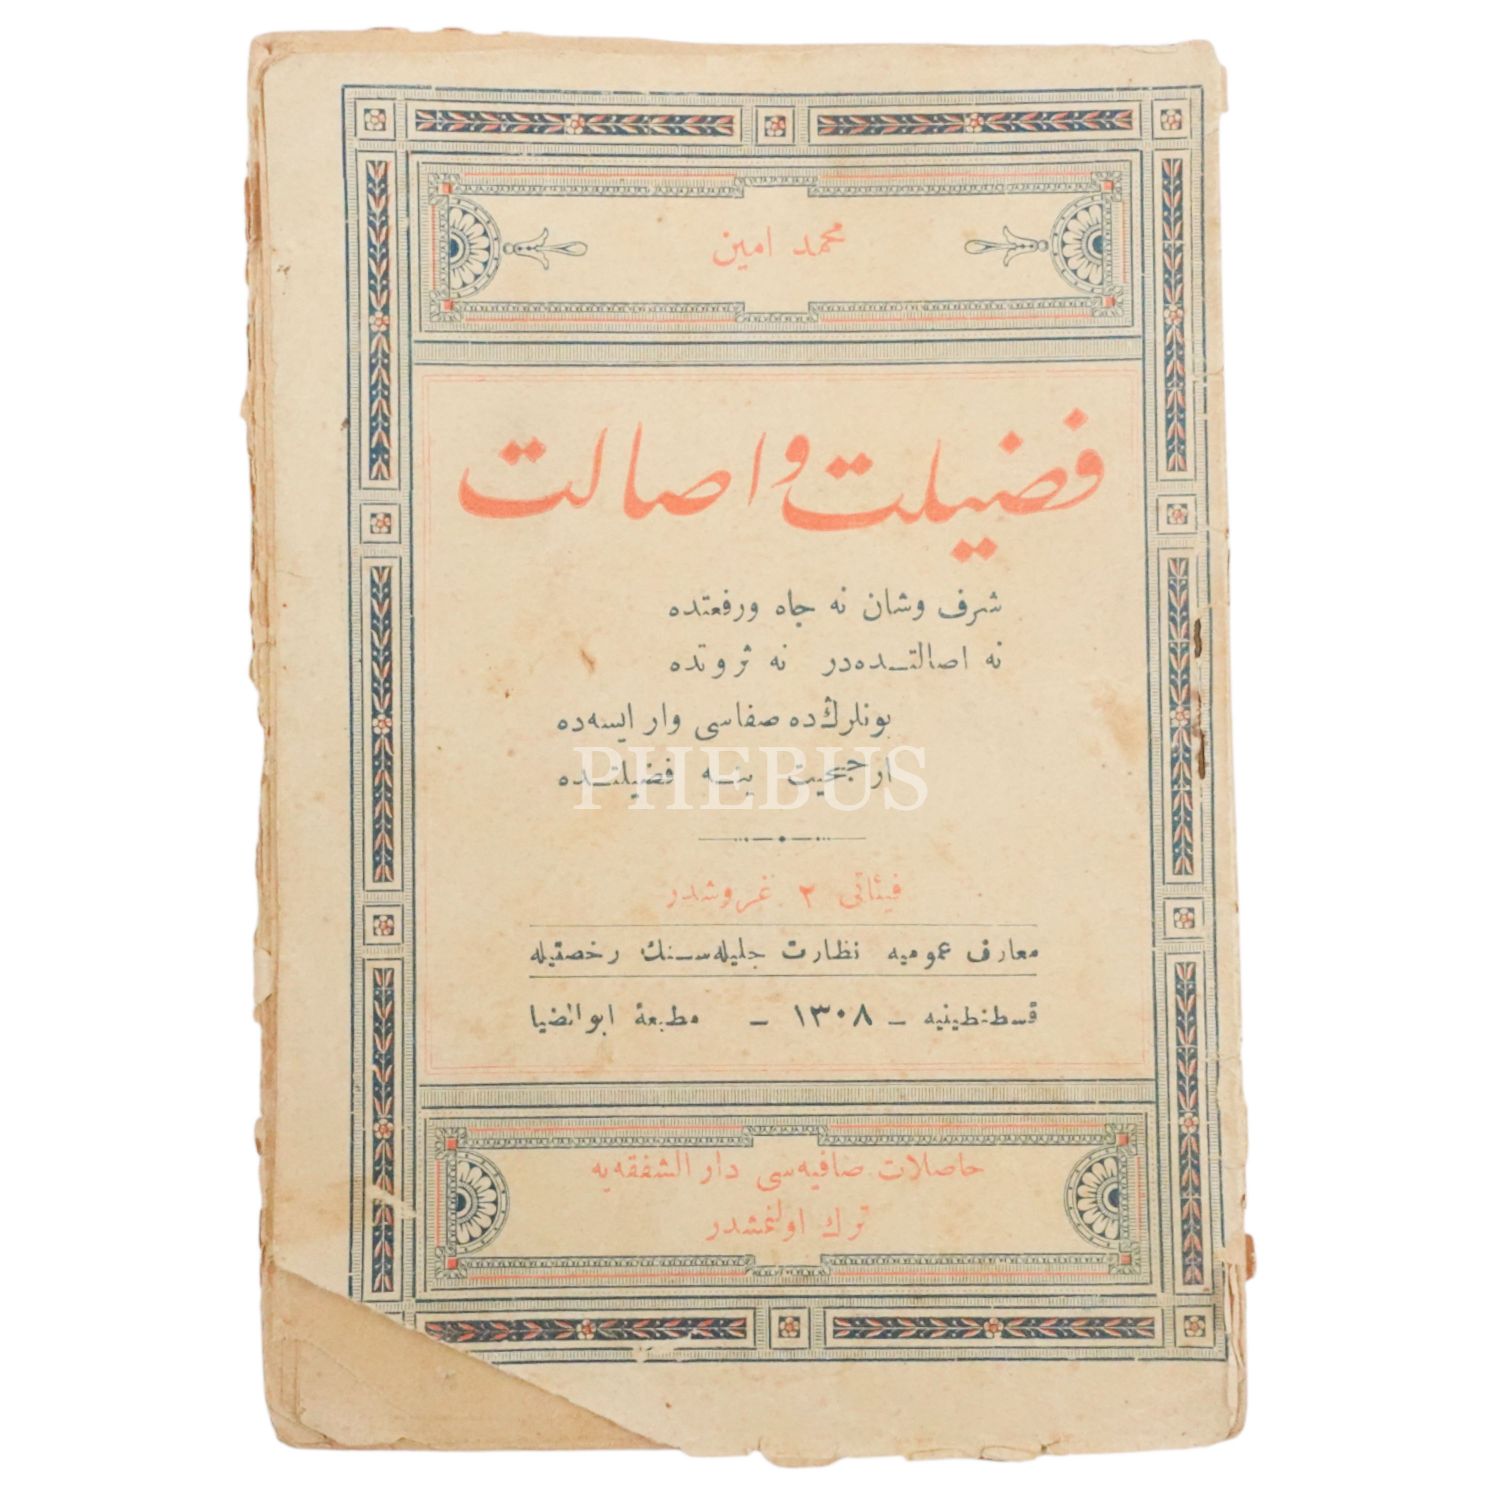 محمد امین
فضیلت و اصالت
شرف وشان نه جاه ورفعتده
نه اصالتــده‌در نه ثروتده
بونلرڭ‌ده صفاسی وار ایسه‌ده
ارجحیت ینــه فضیلتــده
PHEBUS
فیئاتی ٢ غروشدر
معارف عمومیه نظارت جلیله‌ســنك رخصتیله
قسطنطینیه – ١٣٠٨ – مطبعۀ ابوالضیا
حاصلات صافیه‌سی دار الشفقه‌یه
ترك اولنمشدر